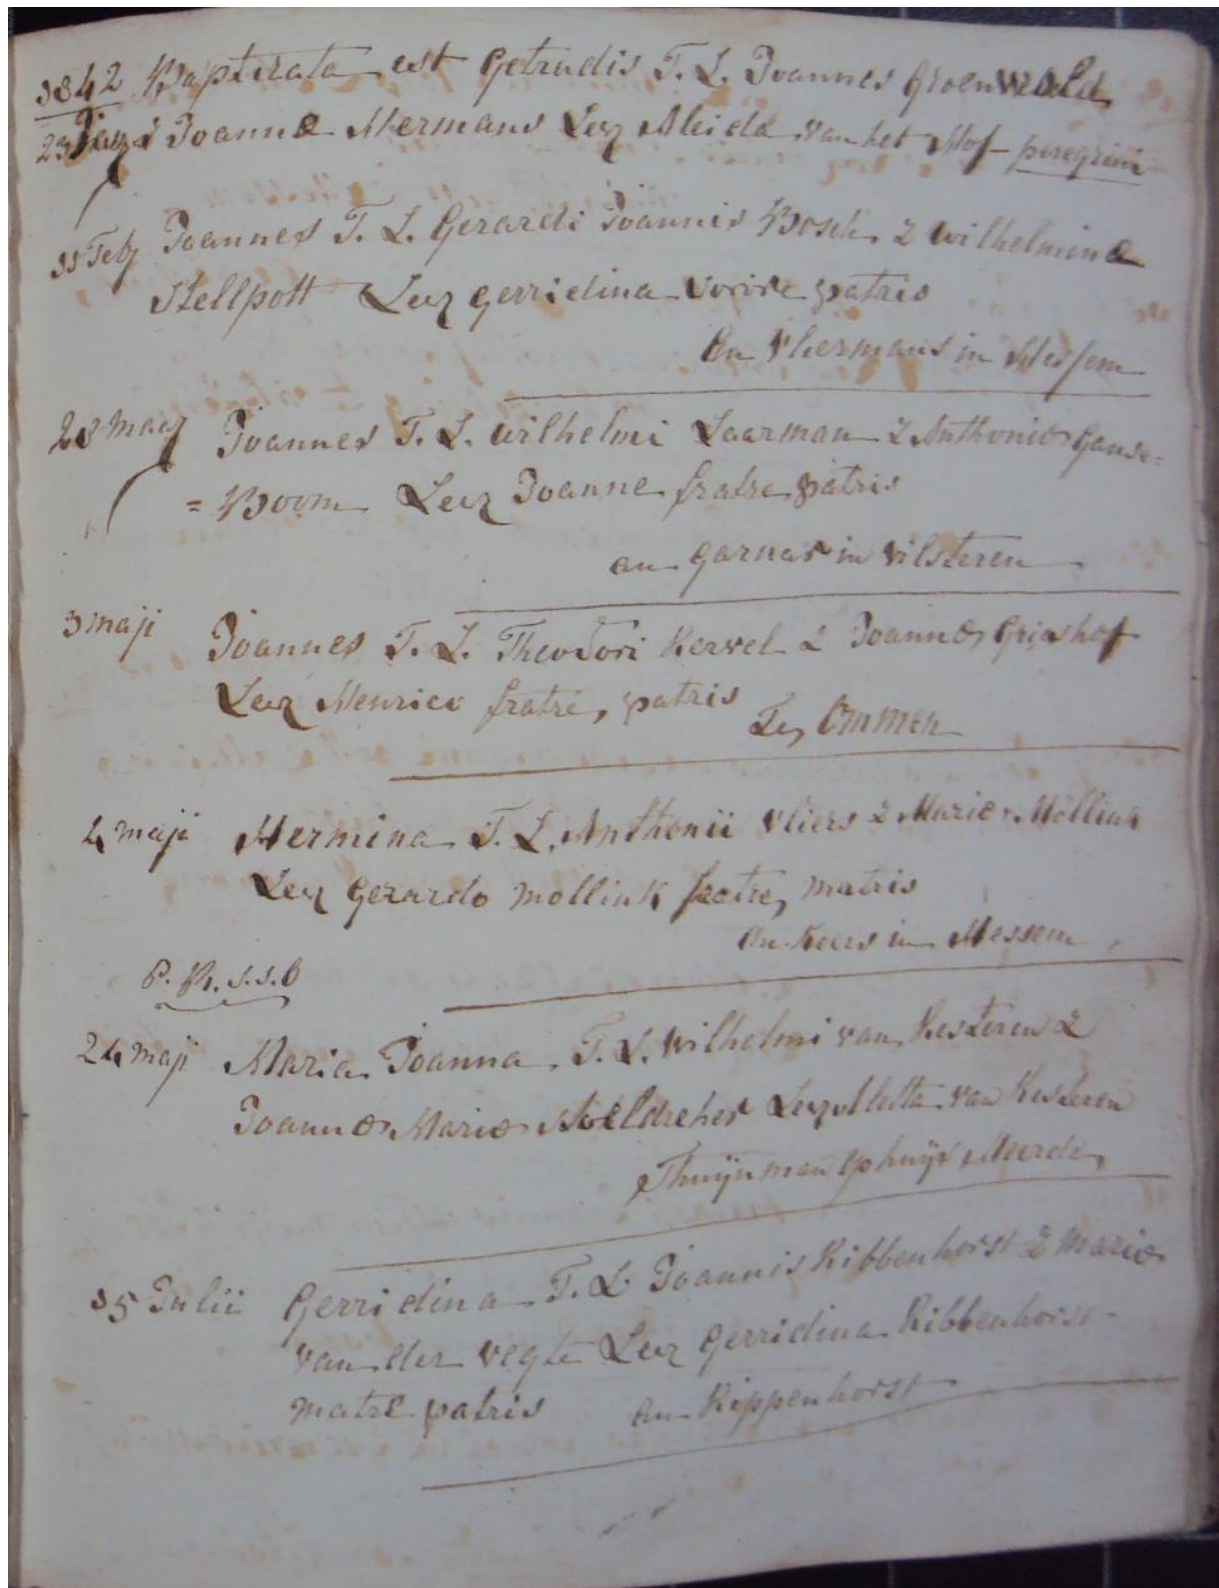 1842 Baptizata est Getrudis F. L. Joannes Groenveld
23 Jan & Joannæ Hermans Lev Aleida van het Hof peregrini
15 Feb Joannes F. L. Gerardi Joannis Bosch & Wilhelminæ
Stellpott Lev gerridina sorore patris
an Vhermans in Hessem
28 maa Joannes F. L. Wilhelmi Laarman & Anthoniæ Ganse=
=Boom Lev Joanne fratre patris
an garnar in vilsteren
3 maji Joannes F. L. Theodori Kervel & Joannæ
Lev Henrico fratre patris Te Ommen
4 maji Hermina F. L. Anthonii Vliers & Mariæ Mollink
Lev Gerardo Mollink fratre matris
an in Hessem
P. R. S. S. O
24 maji Maria Joanna F. L. Wilhelmi van Kesteren &
Joannæ Mariæ Lev Aletta van Kesteren
Thuijnman op huijs
15 Julii Gerridina F. L. Joannis Ribbenhorst & Mariæ
van der vegte Lev Gerridina Ribbenhorst
matre patris an Rippenhorst